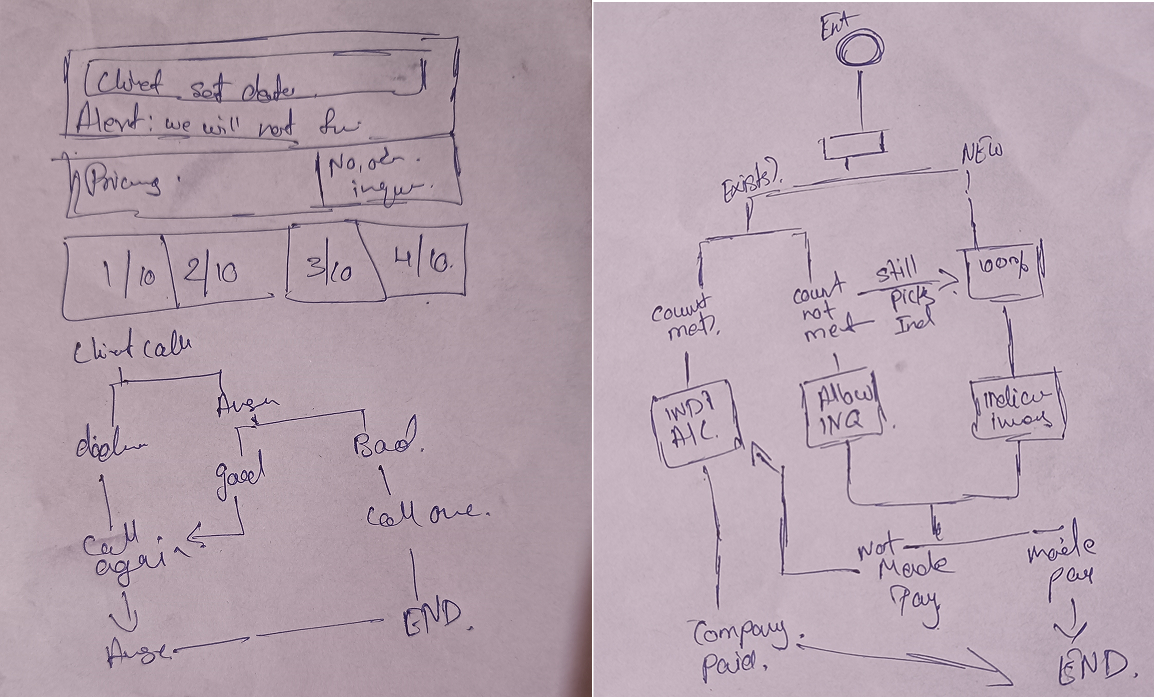 Client set date
Alert: we will not
Pricing.
No,
1/10
2/10
3/10
4/10.
Client calls
good
Bad.
Call
again
Call one.
END.
Ent
Exists?
NEW
count
met?
count
not
met
still
Picks
Ind
100%
IND?
A/C.
Allow
INQ
Not
Made
Pay
made
pay
Company
Paid.
END.